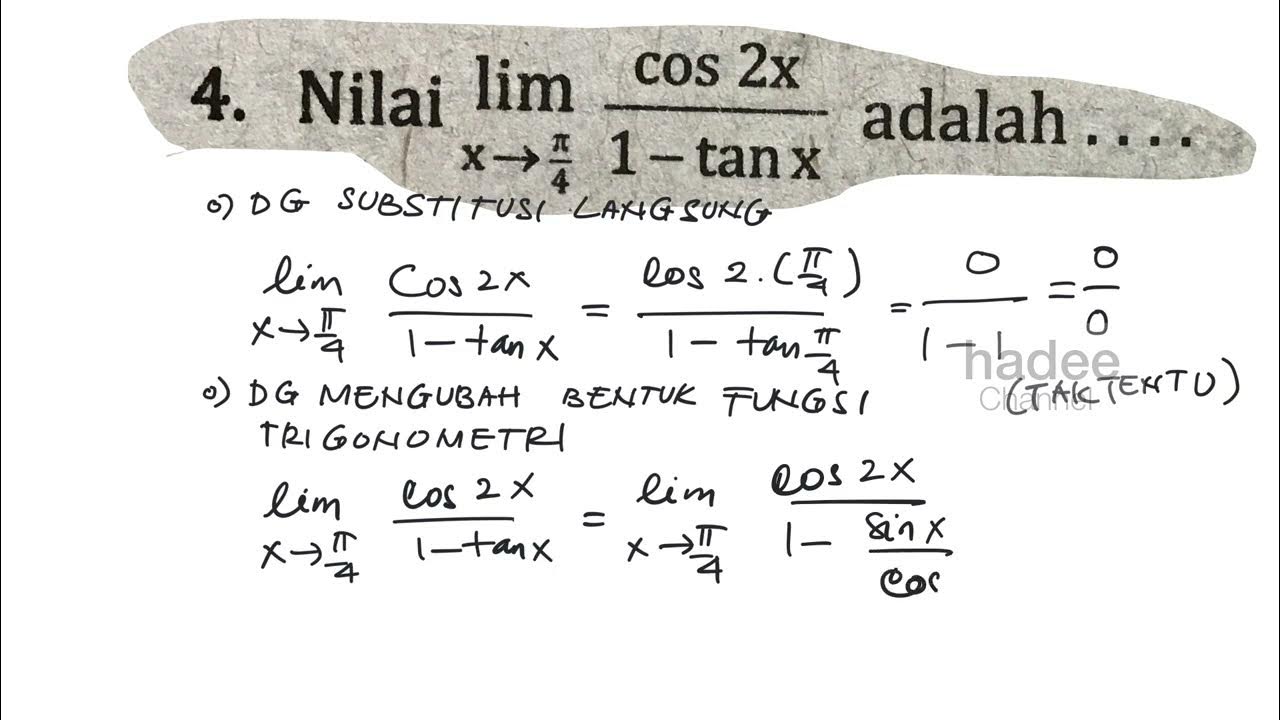 4. Nilai lim x→π/4 cos 2x / 1 − tan x adalah . . . .
o) DG SUBSTITUSI LANGSUNG
lim x→π/4 Cos 2x / 1 − tan x = cos 2.(π/4) / 1 − tan π/4 = 0 / 1 − 1 = 0/0
hadee
Channel
(TAK TENTU)
o) DG MENGUBAH BENTUK FUNGSI
TRIGONOMETRI
lim x→π/4 cos 2x / 1 − tan x = lim x→π/4 cos 2x / 1 − sin x / cos